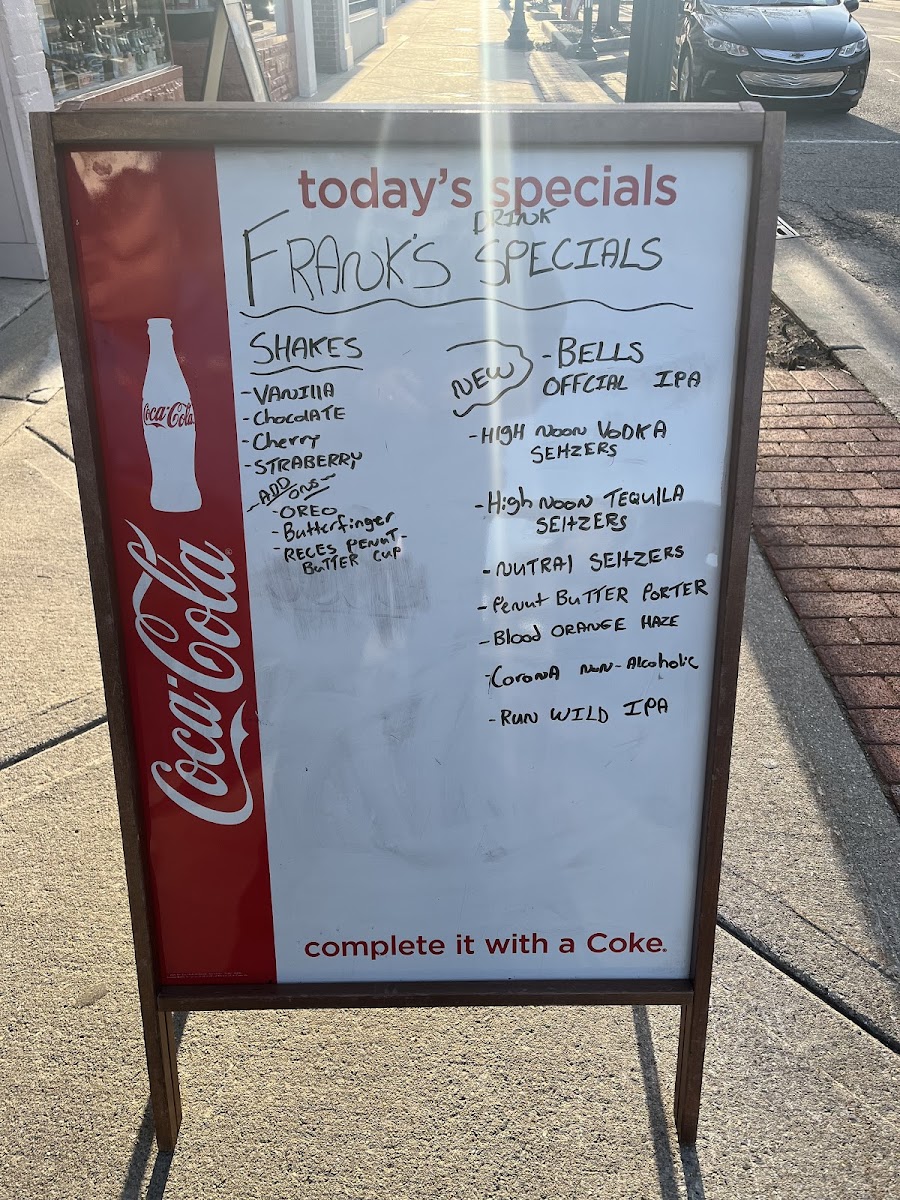 today's specials
DRINK
FRANK'S SPECIALS
SHAKES
-VANIllA
-ChocolATE
-Cherry
-STRABERRY
~ADD ONS~
-OREO
-Butterfinger
-RECES PENUT-
BUTTER CUP
NEW
-BELLS
OFFCIAL IPA
-HIgH NOON VODKA
SEHZERS
-High NOON TEQUILA
SEltZERS
-NUTRAl SEltZERS
-PENut BuTTER PORTER
-Blood ORANGE HAZE
-CoronA NON-Alcoholic
-RUN WILD IPA
Coca-Cola
Coca-Cola
complete it with a Coke.